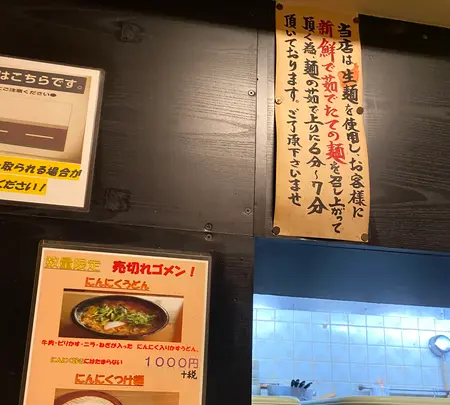 当店は生麺を使用し、お客様に
新鮮で茹でたての麺を召し上がって
頂く為、麺の茹で上りに6分〜7分
頂いております。ご了承下さいませ
はこちらです。
取られる場合が
ださい！
数量限定 売切れゴメン！
にんにくうどん
牛肉・ピリかす・ニラ・ねぎが入った にんにく入りかすうどん。
にんにく好きにはたまらない 1000円
+税
にんにくつけ麺